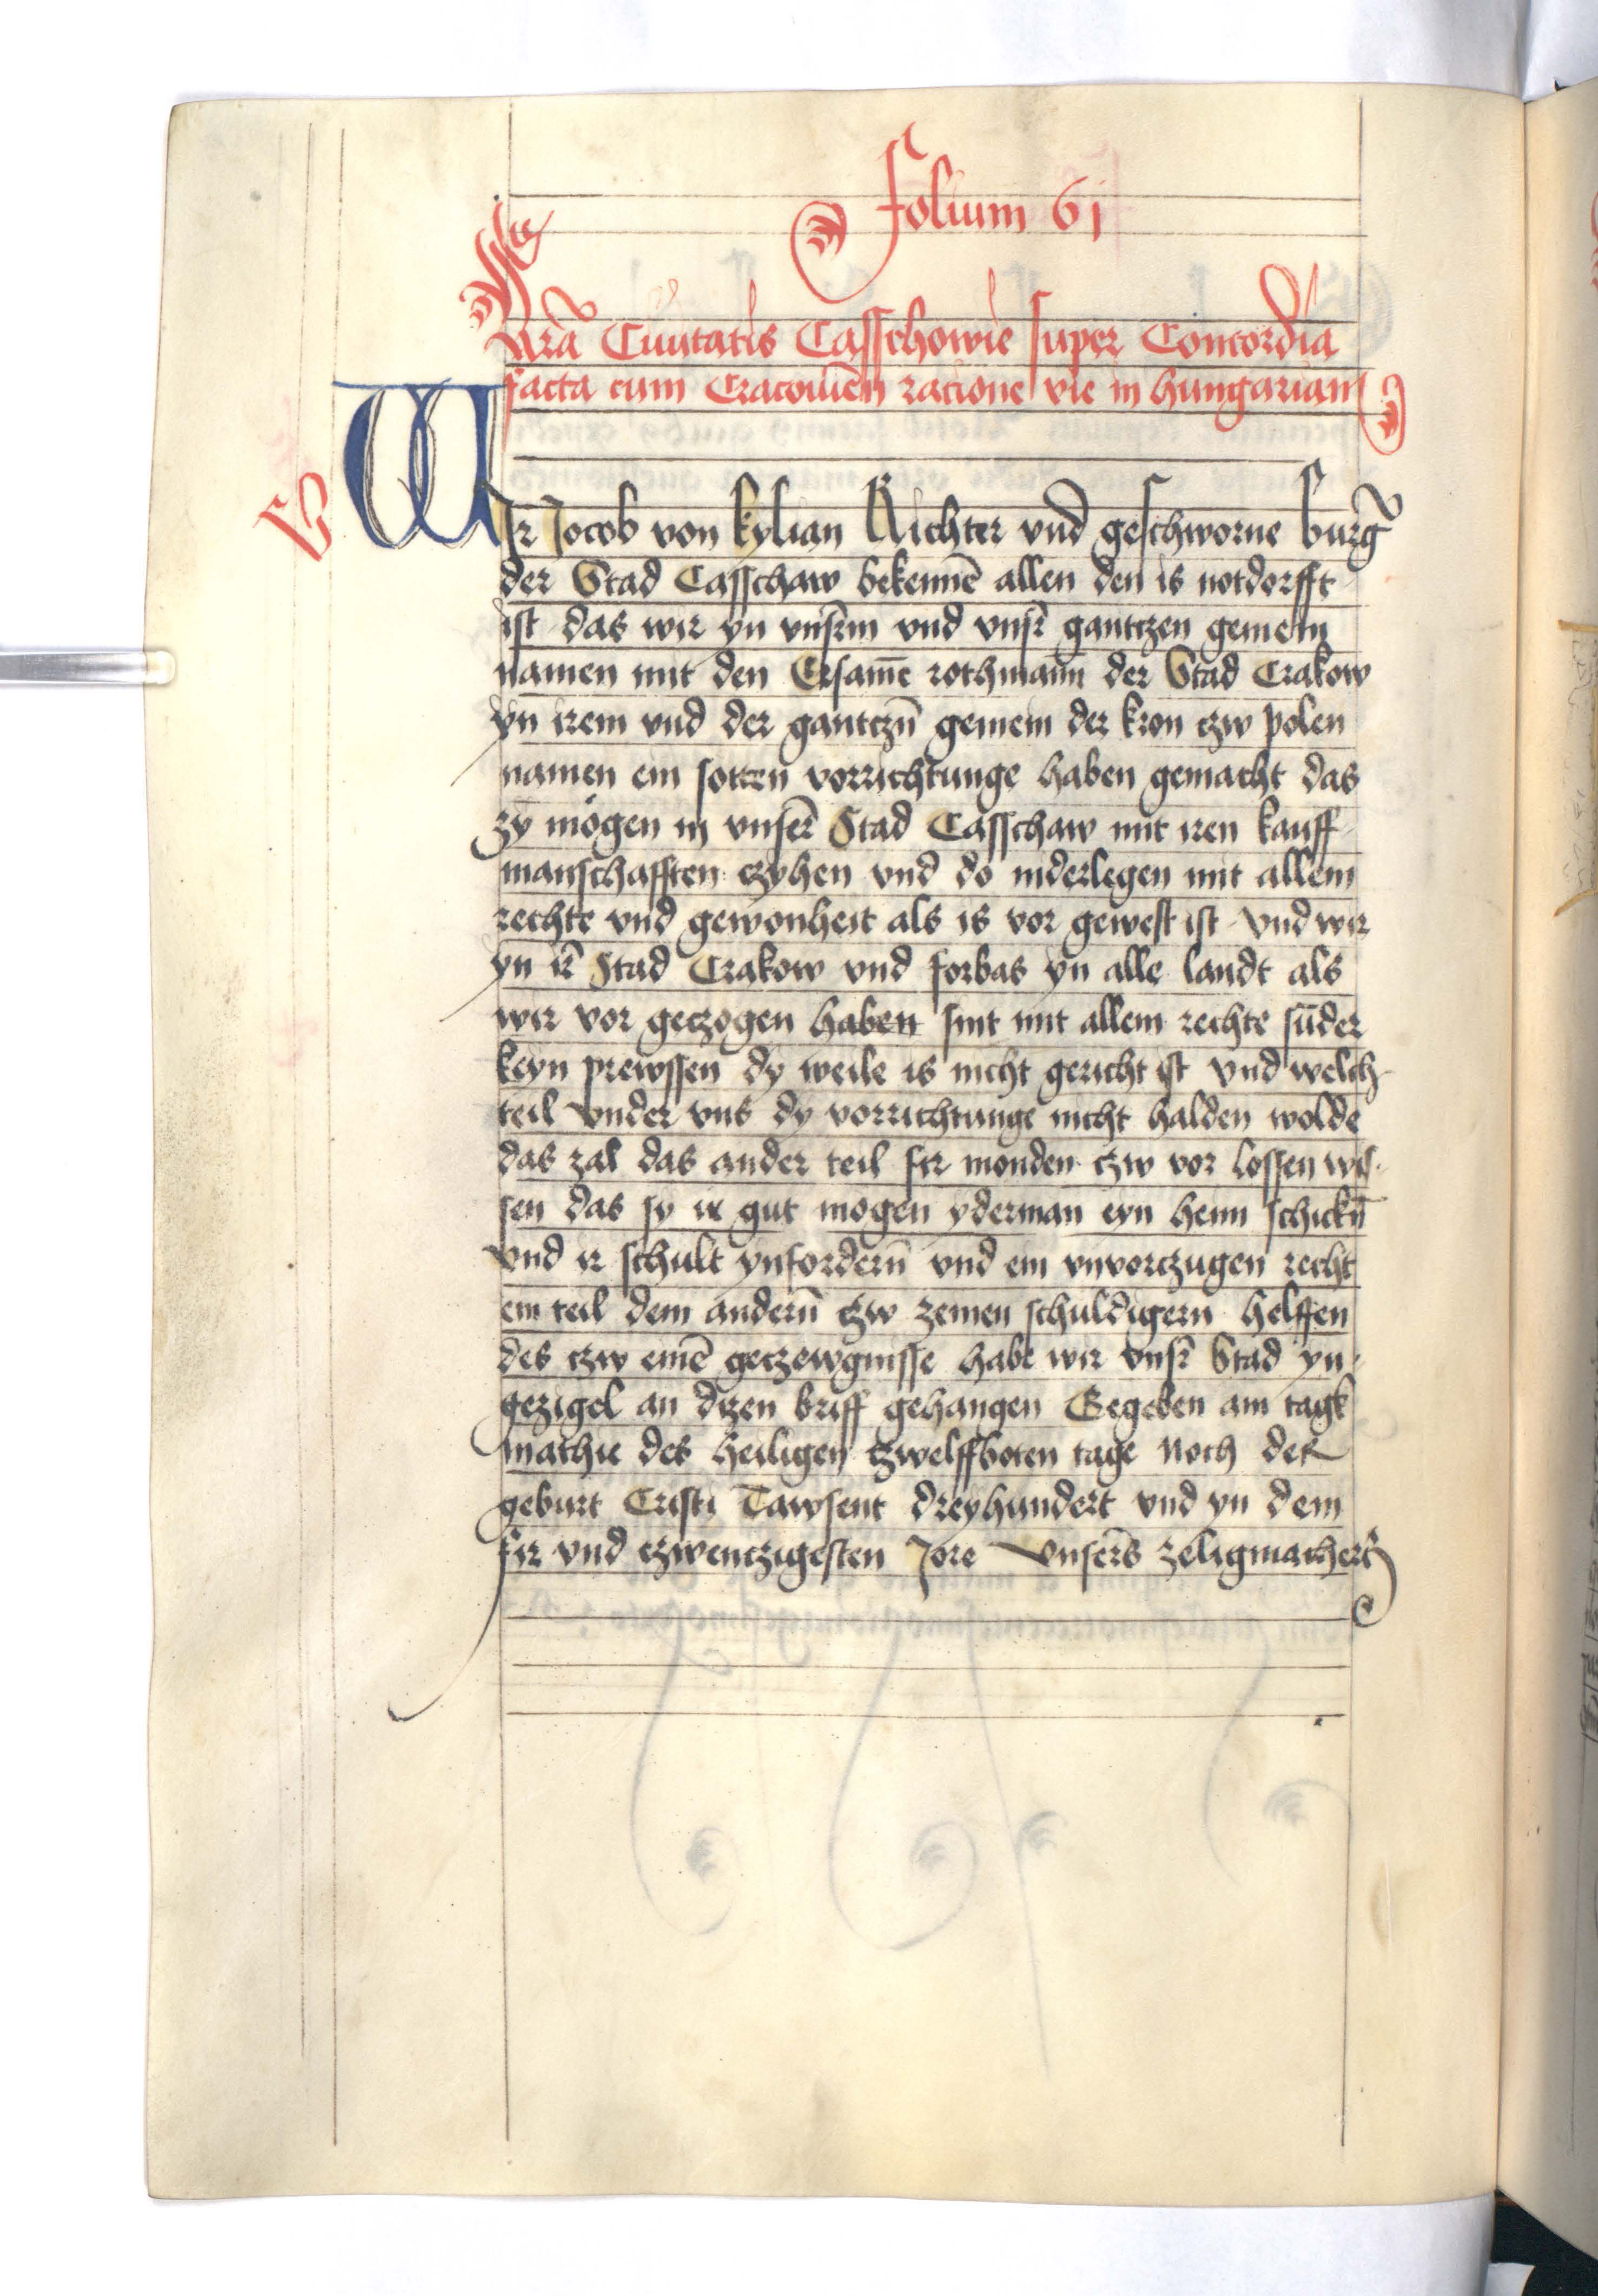 Folium 61
Lr̄a Ciuitatis Casschowie super Concordia
facta cum Cracouien̄ racione vie in hungariam
WIr Jocob von kylian Richter vnd geschworne burg̃
der Stad Casschaw bekennē allen den is notdorfft
ist das wir yn vnserm vnd vnsr̄ gantczen gemein
namen mit den Ersamē rothmann̄ der Stad Crakow
yn irem vnd der gantczn̄ gemein der kron czw polen
namen ein sotten vorrichtunge haben gemacht das
zy mogen in vnser̄ Stad Casschaw mit iren kauff
manschafften czyhen vnd do niderlegen mit allem
rechte vnd gewonheit als is vor gewest ist vnd wir
yn ir̄ Stad Crakow vnd forbas yn alle landt als
wir vor geczogen haben sint mit allem rechte sūder
keyn prewssen dy weile is nicht gericht ist vnd welch
teil vnder vns dy vorrichtunge nicht halden wolde
das zal das ander teil fir monden czw vor lossen wis-
sen das sy ir gut mogen yderman eyn heim schickn̄
vnd ir schult ynfordern̄ vnd ein vnvorczugen recht
ein teil dem andern̄ czw zeinen schuldigern helffen
des czw einē geczewgnisse habe wir vnsr̄ Stad yn-
gezigel an dizen briff gehangen Gegeben am tagk
mathie des heiligen czwelffboten tage Noch der
geburt Cristi Tawsent dreyhundert vnd yn dem
fir vnd czwenczigesten Jore vnsers̄ zeligmachers